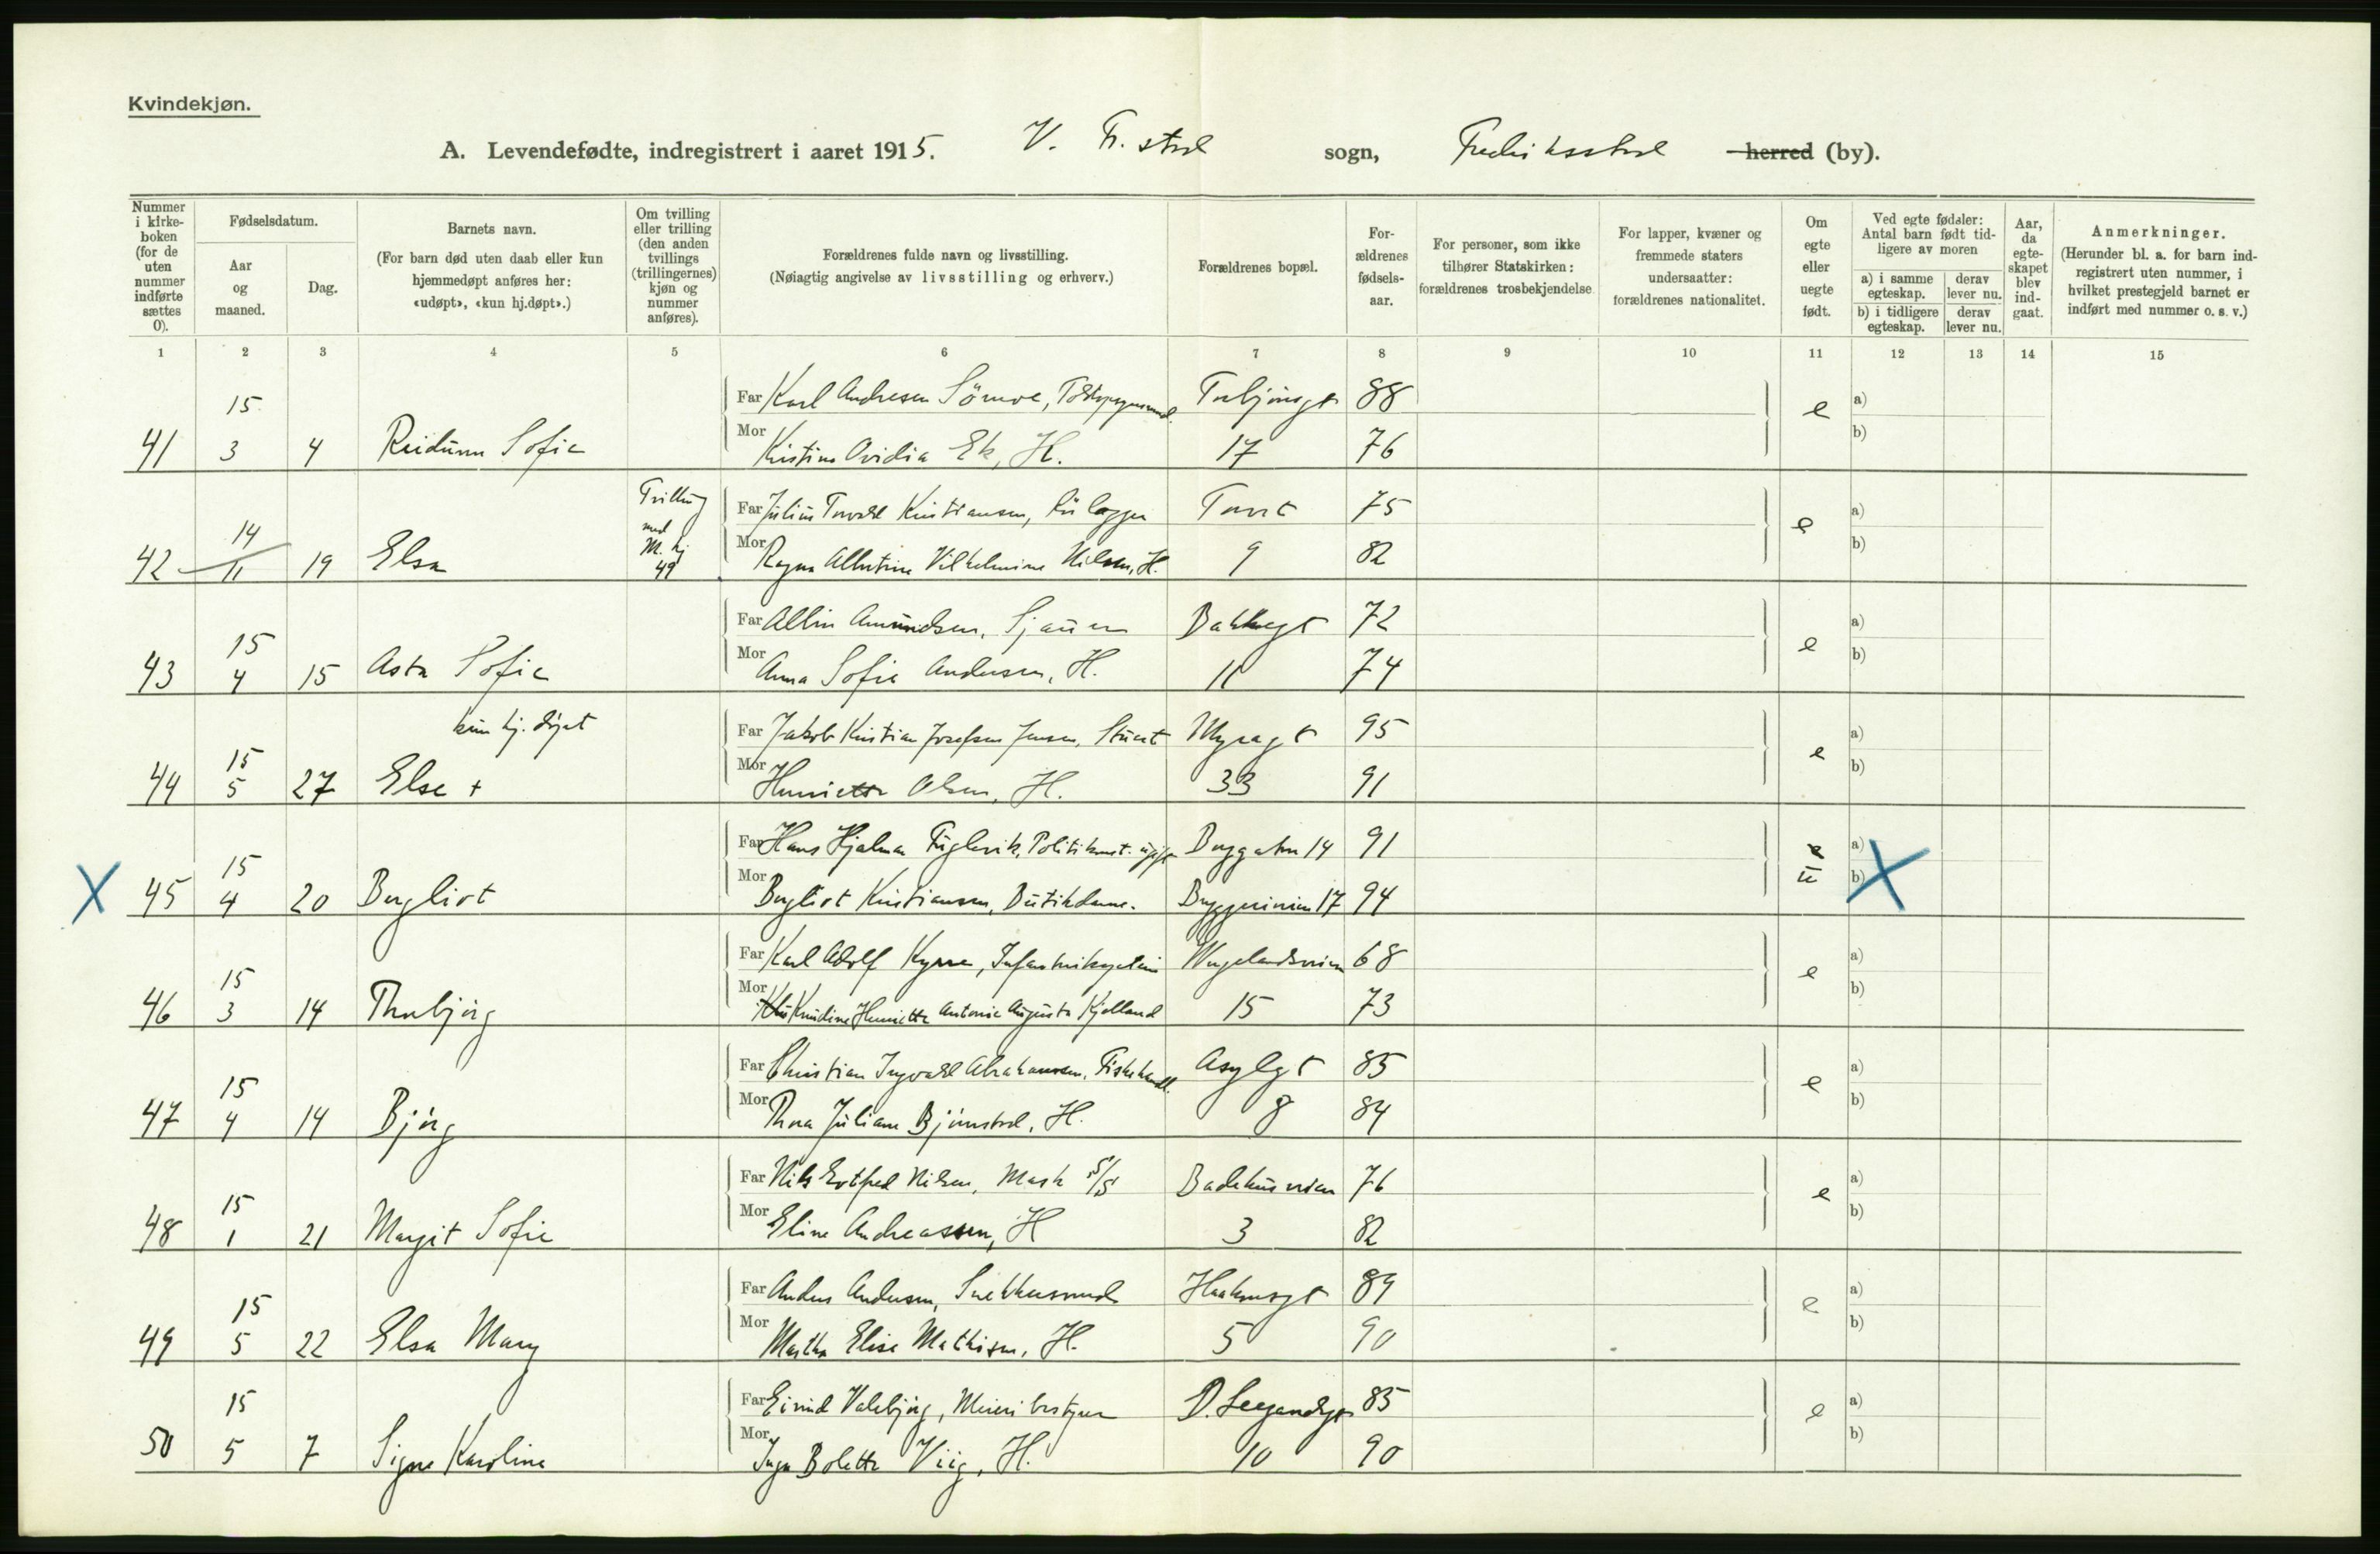 Kvindekjøn.
A. Levendefødte, indregistrert i aaret 1915. V. Fr.stad sogn, Fredriksstad herred (by).
Nummer i kirkeboken (for de uten nummer indførte sættes 0).
Fødselsdatum.
Aar og maaned.
Dag.
Barnets navn.
(For barn død uten daab eller kun hjemmedøpt anføres her: «udøpt», «kun hj.døpt».)
Om tvilling eller trilling (den anden tvillings (trillingernes) kjøn og nummer anføres).
Forældrenes fulde navn og livsstilling.
(Nøiagtig angivelse av livsstilling og erhverv.)
Forældrenes bopæl.
Forældrenes fødselsaar.
For personer, som ikke tilhører Statskirken: forældrenes trosbekjendelse
For lapper, kvæner og fremmede staters undersaatter: forældrenes nationalitet.
Om egte eller uegte født.
Ved egte fødsler: Antal barn født tidligere av moren
a) i samme egteskap.
derav lever nu.
b) i tidligere egteskap.
derav lever nu.
Aar, da egteskapet blev indgaat.
Anmerkninger.
(Herunder bl. a. for barn indregistrert uten nummer, i hvilket prestegjeld barnet er indført med nummer o. s. v.)
1 2 3 4 5 6 7 8 9 10 11 12 13 14 15
15 Far Karl Andresen 88 e a)
41 3 4 Reidunn Sofie Mor Kristine Ovidia Ek, H. 17 76 b)
14 Tvilling med M. kj 49 Far Julius Torvald Kristiansen, 75 e a)
42 11 19 Elsa Mor Ragna Albertine Vilhelmine Nilsen, H. 9 82 b)
15 Far Albin Amundsen, Sjauer Bakkegt 72 e a)
43 4 15 Asta Sofie Mor Anna Sofie Andersen, H. 11 74 b)
kun hj. døpt
15 Far Jakob Kristian Josefsen Jensen, Stuert Myragt 95 e a)
44 5 27 Else + Mor Henriette Olsen, H. 33 91 b)
15 Far Hans Hjalmar Fuglevik, Politikonst. ugift 14 91 e a)
X 45 4 20 Bergliot Mor Bergliot Kristiansen, Butikdame. Bryggeriveien 17 94 u b) X
15 Far Karl Adolf Kyrre, Infanterikaptein Wergelandsveien 68 e a)
46 3 14 Thorbjørg Mor Kundine Henriette Antonie Augusta Kjelland 15 73 b)
15 Far Christian Ingvald Abrahamsen, Fiskehandl. Asylgt 85 e a)
47 4 14 Bjørg Mor Thora Juliane Bjørnstad, H. 8 84 b)
15 Far Nils Gotfred Nilsen, Mask S/S Badehusveien 76 e a)
48 1 21 Margit Sofie Mor Eline Andreassen, H 3 82 b)
15 Far Anders Andersen, Snekkersvend Haakonsgt 89 e a)
49 5 22 Elsa Mary Mor Martha Elise Mathisen, H. 5 90 b)
15 Far Eivind Valebjørg, Meieribestyrer 85 e a)
50 5 7 Signe Karoline Mor Inga Bolette Viig, H. 10 90 b)